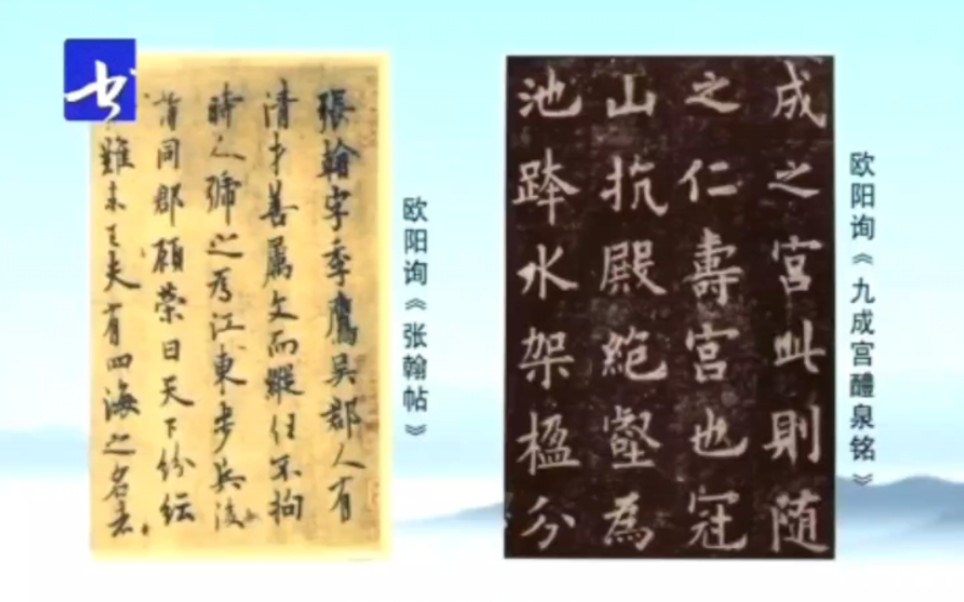 书
張翰字季鷹吴郡人有
清才善属文而縱任不拘
時人號之為江東步兵後
謂同郡顧榮曰天下紛紜
難未已夫有四海之名者
欧阳询《张翰帖》
成之宫此則随
之仁壽宫也冠
山抗殿絶壑為
池跨水架楹分
欧阳询《九成宫醴泉铭》